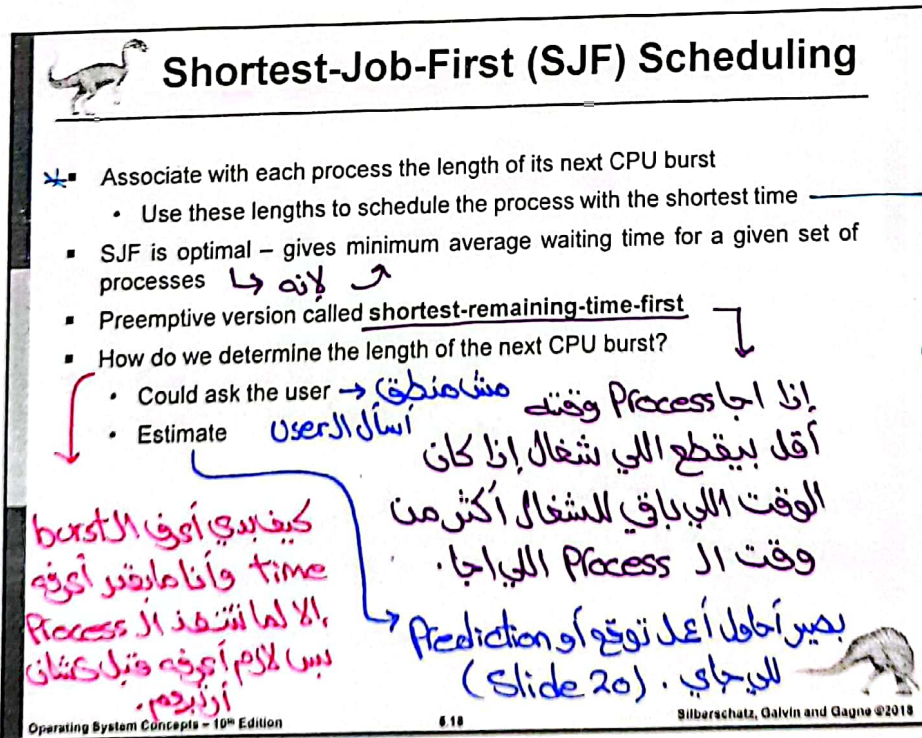 Shortest-Job-First (SJF) Scheduling
Associate with each process the length of its next CPU burst
• Use these lengths to schedule the process with the shortest time
▪ SJF is optimal – gives minimum average waiting time for a given set of
processes لإنه
▪ Preemptive version called shortest-remaining-time-first
▪ How do we determine the length of the next CPU burst?
• Could ask the user → مش منطق
أسأل الـ User
• Estimate
إذا اجا Process وقته
أقل بيقطع اللي شغال إذا كان
الوقت اللي باقي للشغال أكثر من
وقت الـ Process اللي اجا.
كيف بدي أعرف الـ burst
time وأنا ما بقدر أعرفه
إلا لما تتنفذ الـ Process
بس لازم أعرفه قبل عشان
أرتبهم.
بصير أحاول أعمل توقع أو Prediction
للي جاي. (Slide 20)
Operating System Concepts – 10th Edition
6.18
Silberschatz, Galvin and Gagne ©2018